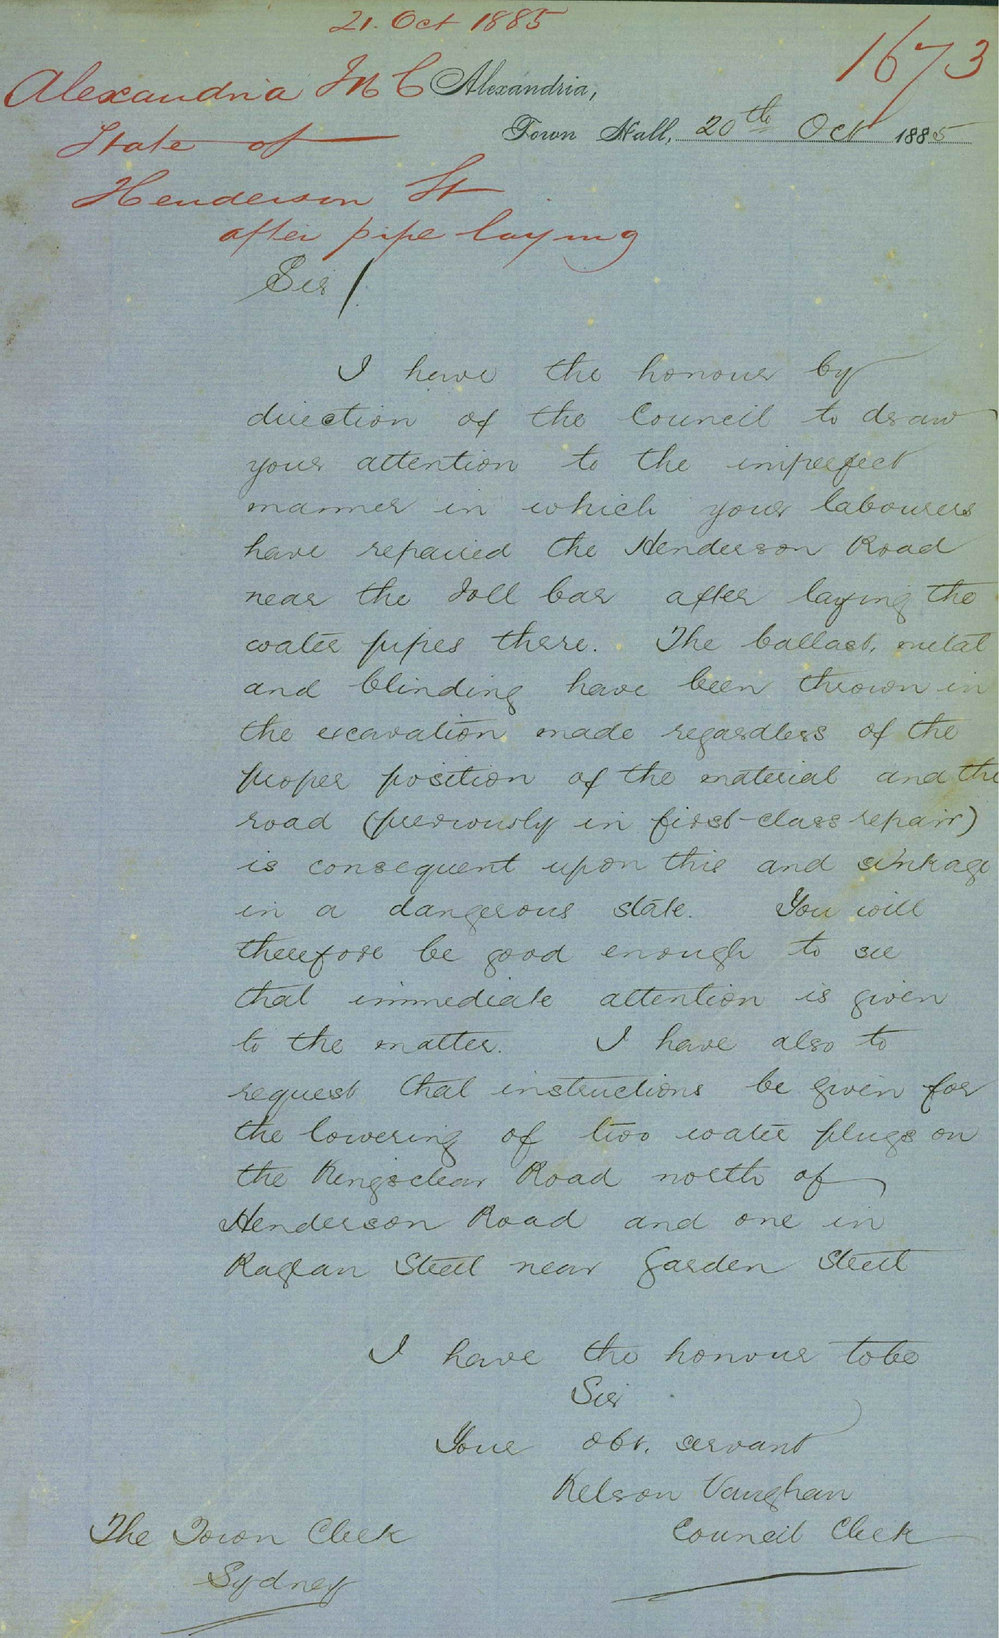 21. Oct 1885
1673
Alexandria M C
State of
Henderson St
after pipe laying
Alexandria,
Town Hall, 20th Oct 1885
Sir /
I have the honour by
direction of the Council to draw
your attention to the imperfect
manner in which your labourers
have repaired the Henderson Road
near the Toll bar after laying the
water pipes there. The ballast, metal
and blinding have been thrown in
the excavation made regardless of the
proper position of the material and the
road (previously in first-class repair)
is consequent upon this and sinkage
in a dangerous state. You will
therefore be good enough to see
that immediate attention is given
to the matter. I have also to
request that instructions be given for
the lowering of two water plugs on
the Kingsclear Road north of
Henderson Road and one in
Raglan Street near Garden Street
I have the honour to be
Sir
Your obt. servant
Kelson Vaughan
Council Clerk
The Town Clerk
Sydney